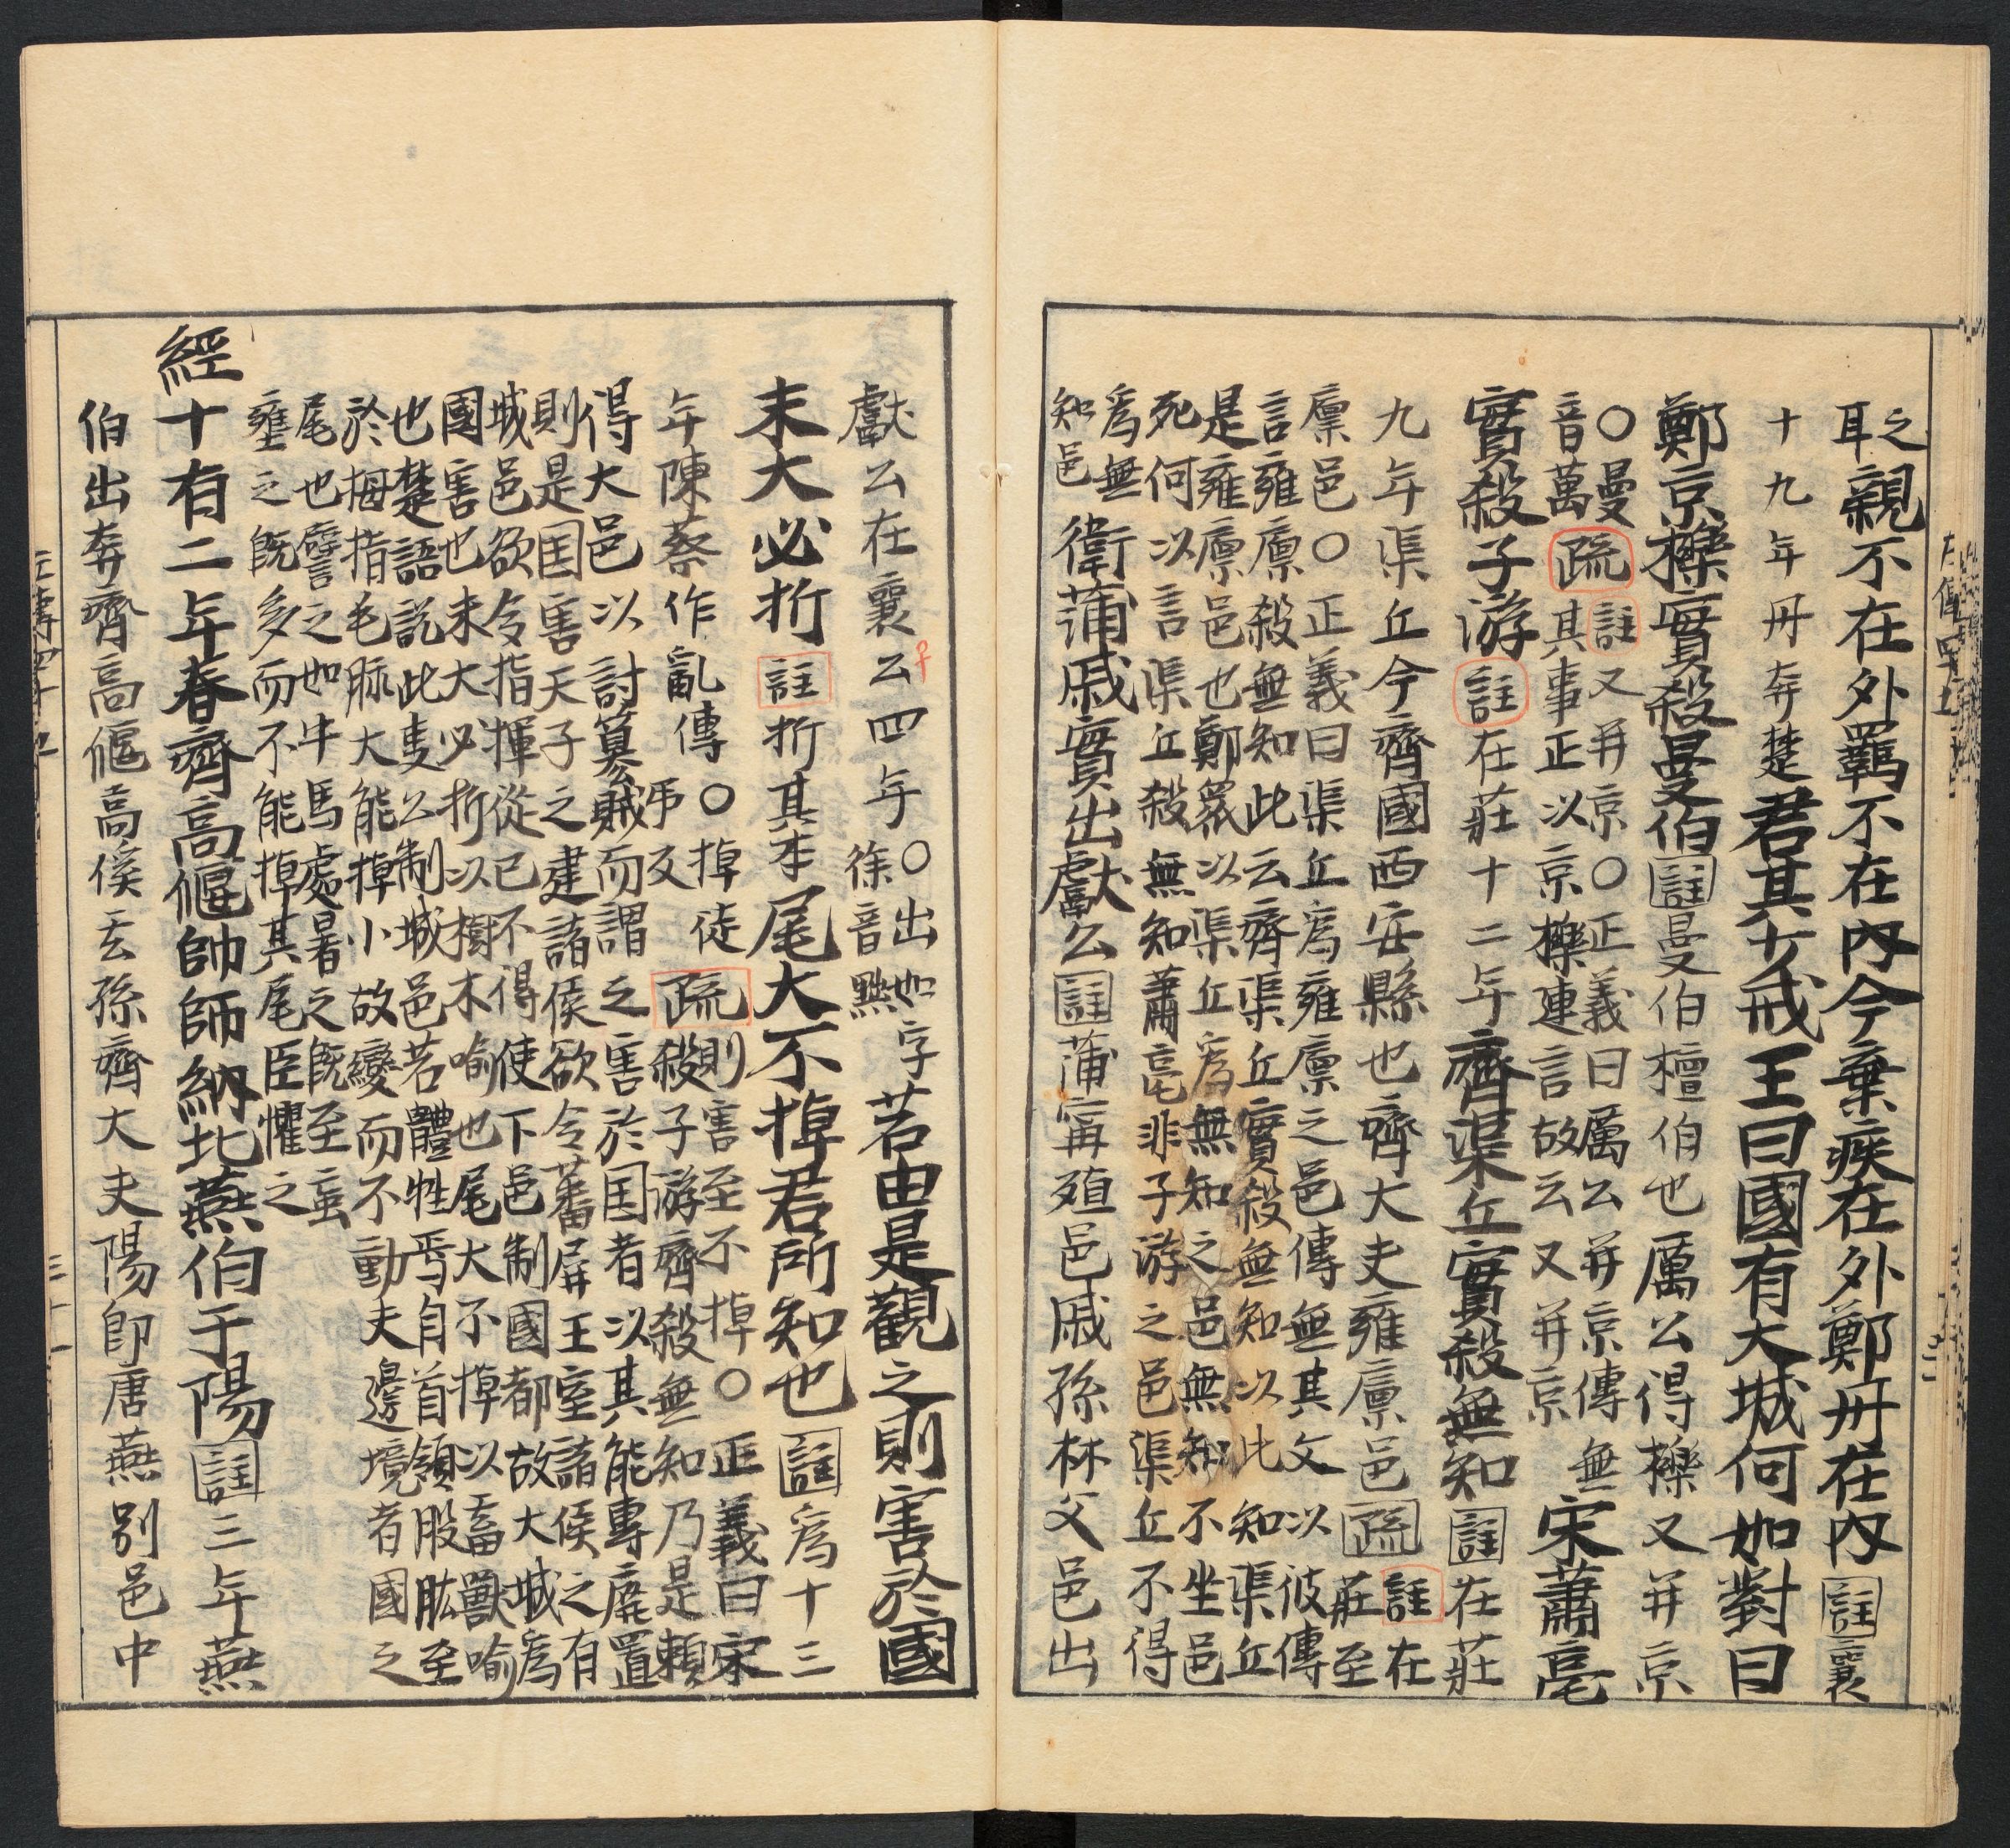 之耳親不在外羈不在內今棄疾在外鄭丹在內註襄
十九年丹奔楚君其少戒王曰國有大城何如對曰
鄭京櫟實殺曼伯註曼伯檀伯也厲公得櫟又并京
○曼音萬疏註又并京○正義曰厲公并京傳無
其事正以京櫟連言故云又并京宋蕭亳
實殺子游註在莊十二年齊渠丘實殺無知註在莊
九年渠丘今齊國西安縣也齊大夫雍廩邑疏註在莊至
廩邑○正義曰渠丘爲雍廩之邑傳無其文以彼傳
言雍廩殺無知此云齊渠丘實殺無知以此知渠丘
是雍廩邑也鄭眾以渠丘爲無知之邑無知不坐邑
死何以言渠丘殺無知蕭亳非子游之邑渠丘不得
爲無知邑衛蒲戚實出獻公註蒲甯殖邑戚孫林父邑出
獻公在襄公四年○出如字徐音黜若由是觀之則害於國
末大必折註折其本尾大不掉君所知也註爲十三
年陳蔡作亂傳○掉徒弔反疏則害至不掉○正義曰宋
殺子游齊殺無知乃是賴
得大邑以討篡賊而謂之害於国者以其能專廢置
則是国害天子之建諸侯欲令蕃屏王室諸侯之有
城邑欲令指揮從已不得使下邑制國都故大城爲
國害也末大必折以樹木喻也尾大不掉以畜獸喻
也楚語說此隻公制城邑若體牲焉自首領股肱至
於拇指毛脉大能掉小故變而不動夫邊境者國之
尾也譬之如牛馬處暑之既至䖟
壅之既多而不能掉其尾臣懼之
經十有二年春齊高偃帥師納北燕伯于陽註三年燕
伯出奔齊高偃高傒玄孫齊大夫陽即唐燕別邑中